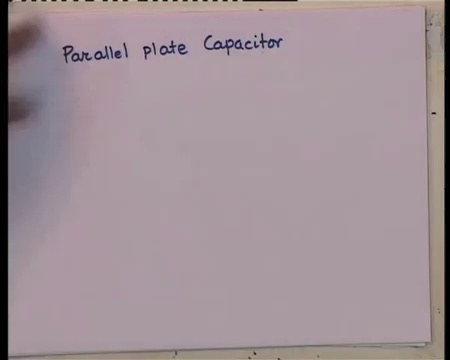 Parallel plate Capacitor